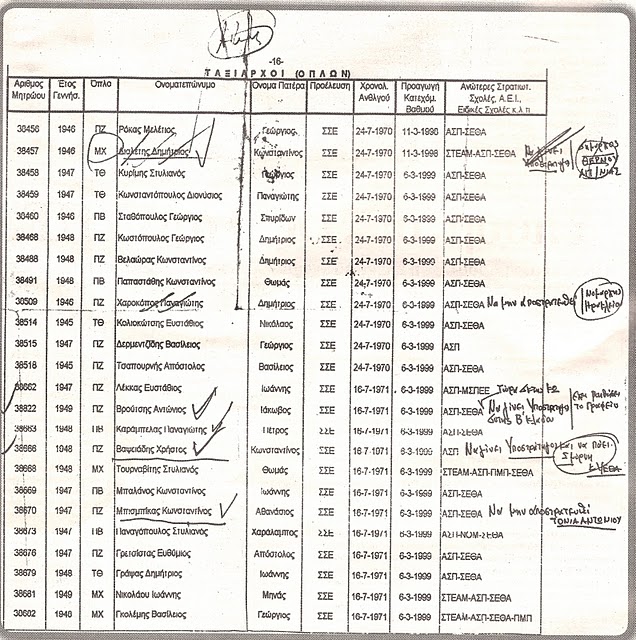 -16-
ΤΑΞΙΑΡΧΟΙ (ΟΠΛΩΝ)
Αριθμος Μητρώου Έτος Γεννήσ. Όπλο Ονοματεπώνυμο Όνομα Πατέρα Προέλευση Χρονολ. Ανθλγού Προαγωγή Κατεχόμ. Βαθμού Ανώτερες Στρατιωτ. Σχολές, Α.Ε.Ι., Ειδικές Σχολές κ.λ.π.
38456 1946 ΠΖ Ρόκας Μελέτιος Γεώργιος ΣΣΕ 24-7-1970 11-3-1998 ΑΣΠ-ΣΕΘΑ
38457 1946 ΜΧ Διαλέτης Δημήτριος Κωνσταντίνος ΣΣΕ 24-7-1970 11-3-1998 ΣΤΕΑΜ-ΑΣΠ-ΣΕΘΑ Να γίνει Υποστράτηγος
38458 1947 ΤΘ Κυρίμης Στυλιανός Γεώργιος ΣΣΕ 24-7-1970 6-3-1999 ΑΣΠ-ΣΕΘΑ
38459 1947 ΤΘ Κωνσταντόπουλος Διονύσιος Παναγιώτης ΣΣΕ 24-7-1970 6-3-1999 ΑΣΠ-ΣΕΘΑ
38460 1946 ΠΒ Σταθόπουλος Γεώργιος Σπυρίδων ΣΣΕ 24-7-1970 6-3-1999 ΑΣΠ-ΣΕΘΑ
38468 1948 ΠΖ Κωστόπουλος Γεώργιος Δημήτριος ΣΣΕ 24-7-1970 6-3-1999 ΑΣΠ-ΣΕΘΑ
38488 1948 ΠΖ Βελαώρας Κωνσταντίνος Δημήτριος ΣΣΕ 24-7-1970 6-3-1999 ΑΣΠ-ΣΕΘΑ
38491 1948 ΠΒ Παπαστάθης Κωνσταντίνος Θωμάς ΣΣΕ 24-7-1970 6-3-1999 ΑΣΠ-ΣΕΘΑ
38509 1946 ΠΖ Χαροκόπος Παναγιώτης Δημήτριος ΣΣΕ 24-7-1970 6-3-1999 ΑΣΠ-ΣΕΘΑ Να μην αποστρατευθεί
38514 1945 ΤΘ Κολιοκώτσης Ευστάθιος Νικόλαος ΣΣΕ 24-7-1970 6-3-1999 ΑΣΠ-ΣΕΘΑ
38515 1947 ΠΖ Δερμεντζίδης Βασίλειος Γεώργιος ΣΣΕ 24-7-1970 6-3-1999 ΑΣΠ
38518 1945 ΠΖ Τσαπουρνής Απόστολος Βασίλειος ΣΣΕ 24-7-1970 6-3-1999 ΑΣΠ-ΣΕΘΑ
38662 1947 ΠΖ Λέκκας Ευστάθιος Ιωάννης ΣΣΕ 16-7-1971 6-3-1999 ΑΣΠ-ΜΣΠΕΕ
38822 1949 ΠΖ Βρούτσης Αντώνιος Ιάκωβος ΣΣΕ 16-7-1971 6-3-1999 ΑΣΠ-ΣΕΘΑ Να γίνει Υποστράτηγος
38663 1948 ΠΒ Καράμπελας Παναγιώτης Πέτρος ΣΣΕ 16-7-1971 6-3-1999 ΑΣΠ-ΣΕΘΑ
38666 1948 ΠΖ Βαψειάδης Χρήστος Κωνσταντίνος ΣΣΕ 16-7-1971 6-3-1999 ΑΣΠ Να γίνει Υποστράτηγος και να πάει
38668 1948 ΜΧ Τουρναβίτης Στυλιανός Θωμάς ΣΣΕ 16-7-1971 6-3-1999 ΣΤΕΑΜ-ΑΣΠ-ΠΜΠ-ΣΕΘΑ
38669 1947 ΠΒ Μπαλάνος Κωνσταντίνος Ιωάννης ΣΣΕ 16-7-1971 6-3-1999 ΑΣΠ-ΣΕΘΑ
38670 1947 ΠΖ Μπισμπίκας Κωνσταντίνος Αθανάσιος ΣΣΕ 16-7-1971 6-3-1999 ΑΣΠ-ΣΕΘΑ Να μην αποστρατευθεί
ΤΟΝΙΑ ΑΝΤΩΝΙΟΥ
38673 1947 ΠΒ Παναγόπουλος Στυλιανός Χαράλαμπος ΣΣΕ 16-7-1971 6-3-1999 ΑΣΠ-ΝΟΜ-ΣΕΘΑ
38676 1947 ΠΖ Γρετσίστας Ευθύμιος Απόστολος ΣΣΕ 16-7-1971 6-3-1999 ΑΣΠ-ΣΕΘΑ
38679 1948 ΤΘ Γράψας Δημήτριος Ιωάννης ΣΣΕ 16-7-1971 6-3-1999 ΑΣΠ-ΣΕΘΑ
38681 1949 ΜΧ Νικολάου Ιωάννης Μηνάς ΣΣΕ 16-7-1971 6-3-1999 ΣΤΕΑΜ-ΑΣΠ-ΣΕΘΑ
38682 1948 ΜΧ Γκολέμης Βασίλειος Γεώργιος ΣΣΕ 16-7-1971 6-3-1999 ΣΤΕΑΜ-ΑΣΠ-ΣΕΘΑ-ΠΜΠ